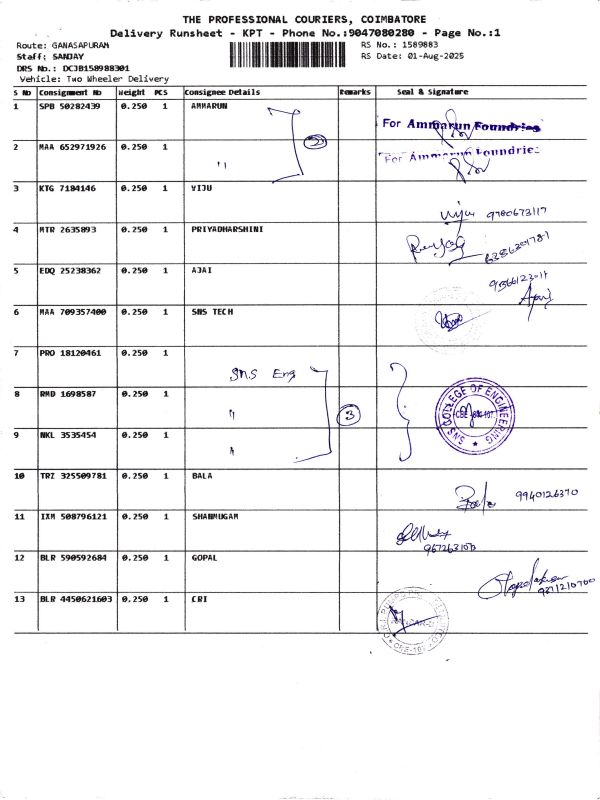 THE PROFESSIONAL COURIERS, COIMBATORE
Delivery Runsheet - KPT - Phone No.:9047080280 - Page No.:1
Route: GANASAPURAM
RS No.: 1589883
Staff: SANJAY
RS Date: 01-Aug-2025
DRS No.: DCJB158988301
Vehicle: Two Wheeler Delivery
S No Consignment No Weight PCS Consignee Details Remarks Seal & Signature
1 SPB 50282439 0.250 1 AMMARUN
For Ammarun Foundries
2 MAA 652971926 0.250 1 " 2
For Ammarun Foundries
3 KTG 7184146 0.250 1 VIJU
viju 9780673117
4 MTR 2635893 0.250 1 PRIYADHARSHINI
6386301781
5 EDQ 25238362 0.250 1 AJAI
6 MAA 709357400 0.250 1 SNS TECH
7 PRO 18120461 0.250 1 SNS Eng
8 RMD 1698587 0.250 1 " 3
SNS COLLEGE OF ENGINEERING
9 NKL 3535454 0.250 1 "
10 TRZ 325509781 0.250 1 BALA
9940126370
11 IXM 508796121 0.250 1 SHANMUGAM
12 BLR 590592684 1 0.250 GOPAL
13 BLR 4450621603 0.250 1 CRI